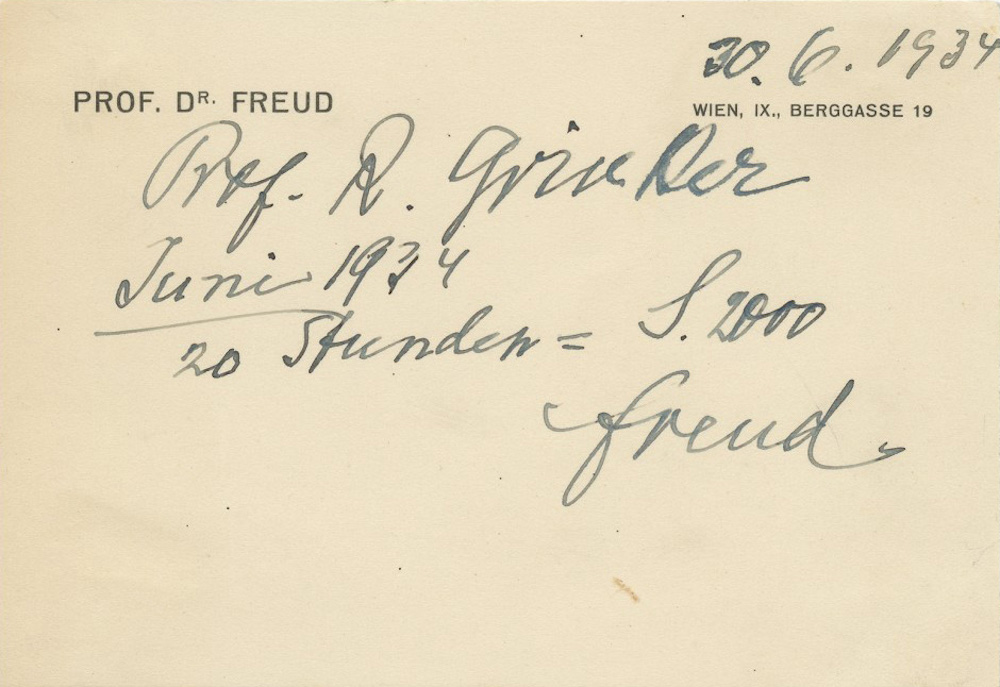 30. 6. 1934
PROF. DR. FREUD
WIEN, IX., BERGGASSE 19
Prof. R. Grinker
Juni 1934
20 Stunden = S. 2000
Freud.